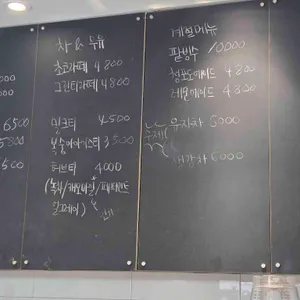 000
000
6500
5800
500
차 & 우유
초코라떼 4800
그린티라떼 4800
밀크티 4500
복숭아아이스티 3500
허브티 4000
(녹차/캐모마일/페퍼민트
얼그레이)
계절메뉴
팥빙수 10000
청포도에이드 4800
레몬에이드 4800
수제 유자차 5000
생강차 6000